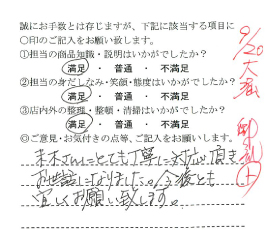 誠にお手数とは存じますが、下記に該当する項目に
○印のご記入をお願い致します。
①担当の商品知識・説明はいかがでしたか？
満足 ・ 普通 ・ 不満足
②担当の身だしなみ・笑顔・態度はいかがでしたか？
満足 ・ 普通 ・ 不満足
③店内外の整理・整頓・清掃はいかがでしたか？
満足 ・ 普通 ・ 不満足
◎ご意見・お気付きの点等、ご記入をお願いします。
さんにとても丁寧に対応頂き
お世話になりました。今後とも
宜しくお願い致します。
9/20